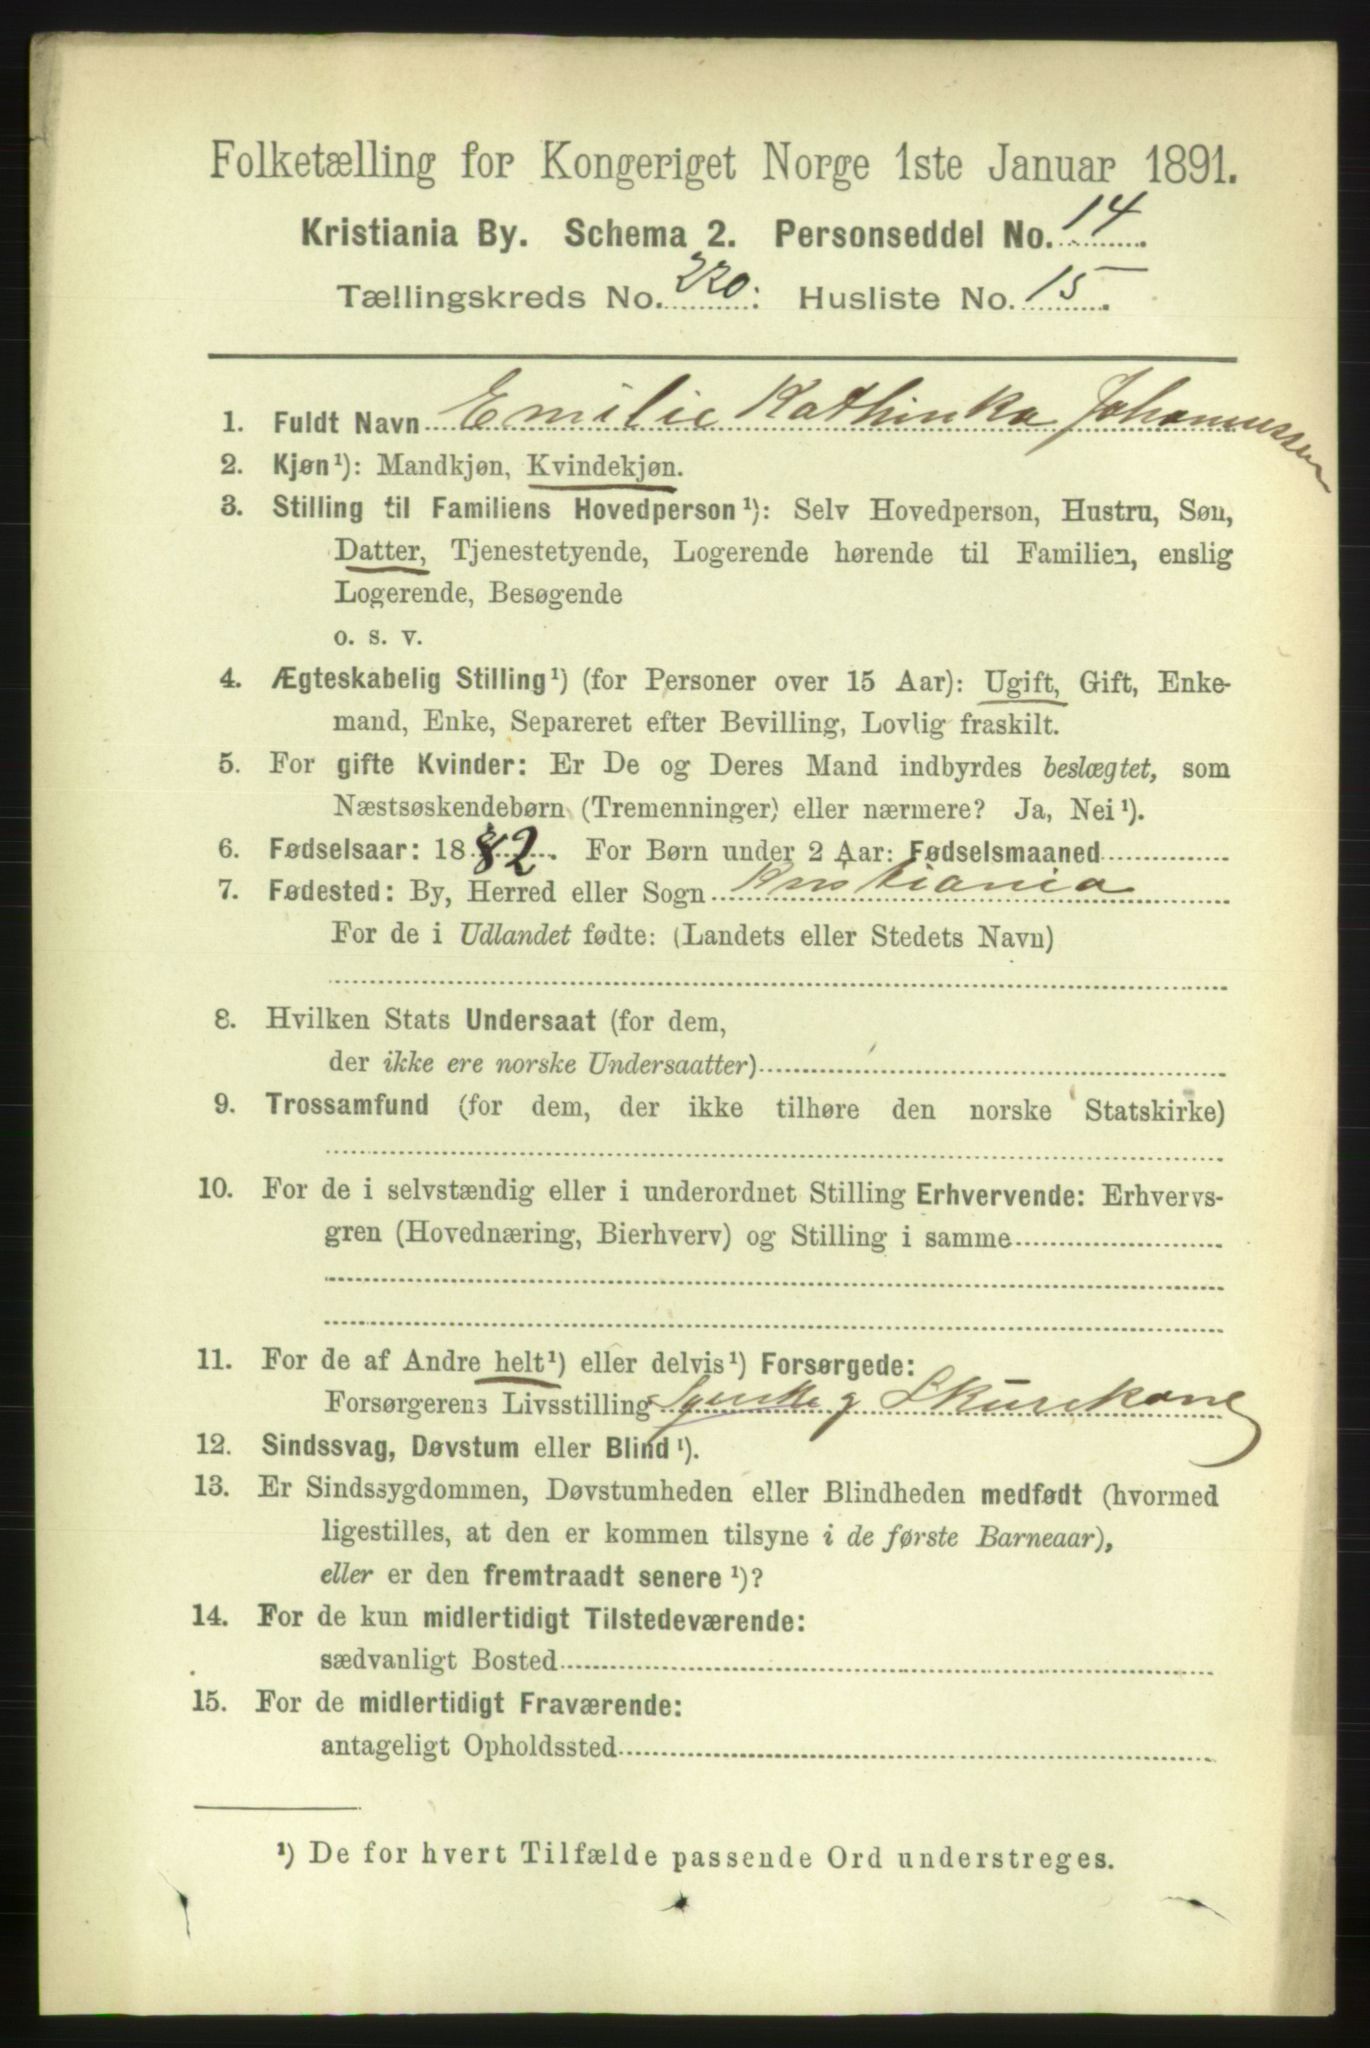 Folketælling for Kongeriget Norge 1ste Januar 1891.
Kristiania By. Schema 2. Personseddel No. 14
Tællingskreds No. 220: Husliste No. 15.
1. Fuldt Navn Emilie Kathinka Johannessen
2. Kjøn¹): Mandkjøn, Kvindekjøn.
3. Stilling til Familiens Hovedperson¹): Selv Hovedperson, Hustru, Søn,
Datter, Tjenestetyende, Logerende hørende til Familien, enslig
Logerende, Besøgende
o. s. v.
4. Ægteskabelig Stilling¹) (for Personer over 15 Aar): Ugift, Gift, Enke-
mand, Enke, Separeret efter Bevilling, Lovlig fraskilt.
5. For gifte Kvinder: Er De og Deres Mand indbyrdes beslægtet, som
Næstsøskendebørn (Tremenninger) eller nærmere? Ja, Nei¹).
6. Fødselsaar: 1882. For Børn under 2 Aar: Fødselsmaaned
7. Fødested: By, Herred eller Sogn Kristiania
For de i Udlandet fødte: (Landets eller Stedets Navn)
8. Hvilken Stats Undersaat (for dem,
der ikke ere norske Undersaatter)
9. Trossamfund (for dem, der ikke tilhøre den norske Statskirke)
10. For de i selvstændig eller i underordnet Stilling Erhvervende: Erhvervs-
gren (Hovednæring, Bierhverv) og Stilling i samme
11. For de af Andre helt¹) eller delvis¹) Forsørgede:
Forsørgerens Livsstilling Skurekone
12. Sindssvag, Døvstum eller Blind¹).
13. Er Sindssygdommen, Døvstumheden eller Blindheden medfødt (hvormed
ligestilles, at den er kommen tilsyne i de første Barneaar),
eller er den fremtraadt senere¹)?
14. For de kun midlertidigt Tilstedeværende:
sædvanligt Bosted
15. For de midlertidigt Fraværende:
antageligt Opholdssted
¹) De for hvert Tilfælde passende Ord understreges.